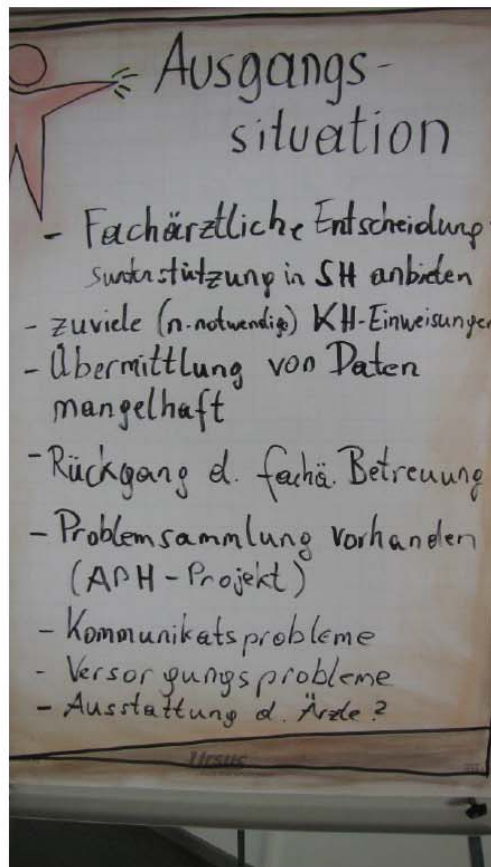 Ausgangs-
situation
- Fachärztliche Entscheidung
sunterstützung in SH anbieten
- zuviele (n. notwendige) KH-Einweisungen
- Übermittlung von Daten
mangelhaft
- Rückgang d. fachä. Betreuung
- Problemsammlung vorhanden
(APH-Projekt)
- Kommunikatsprobleme
- Versorgungsprobleme
- Ausstattung d. Ärzte ?
Ursus